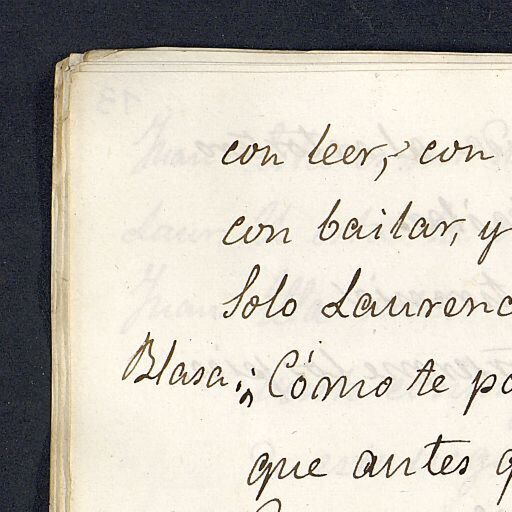 con leer, con
con bailar, y
Solo Laurenc
Blasa. ¿Cómo te po
que antes q